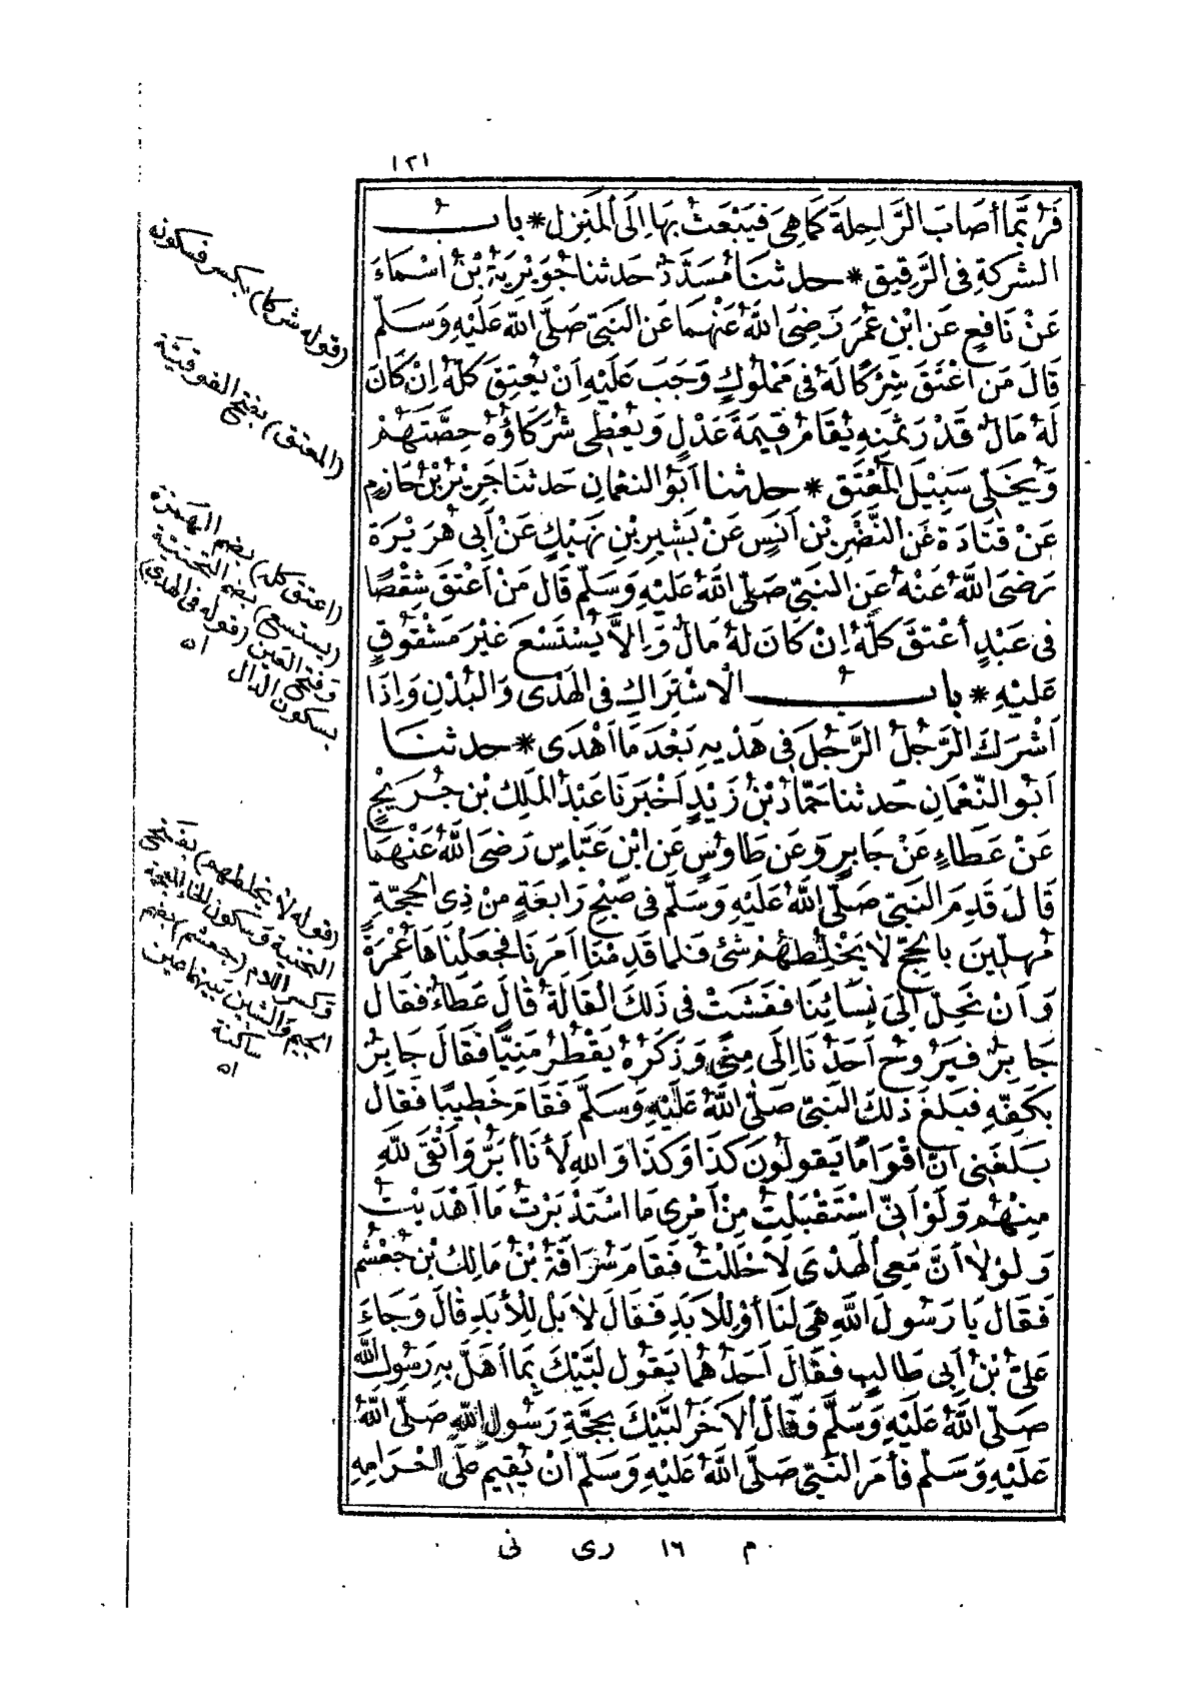 ١٢١
فَرُبَّمَا أَصَابَ الرَّاحِلَةَ كَمَا هِيَ فَيَبْعَثُ بِهَا إِلَى المَنْزِلِ * بابُ
الشركةِ فى الرَّقيقِ * حدثنا مُسَدَّدٌ حَدثنا جُوَيْرِيَةُ بْنُ أَسْمَاءَ
عَنْ نَافِعٍ عَنِ ابْنِ عُمَرَ رَضِىَ اللَّهُ عَنْهُمَا عَنِ النَّبِىِّ صَلَّى اللَّهُ عَلَيْهِ وَسَلَّم
قَالَ مَن أَعْتَقَ شِرْكًا لَهُ فى مَمْلُوكٍ وَجَبَ عَلَيْهِ اَنْ يُعْتِقَ كُلَّهُ اِنْ كَانَ
لَهُ مَالٌ قَدْرَ ثَمَنِهِ يُقَامُ قِيمَةَ عَدْلٍ وَيُعْطَى شُرَكَاؤُهُ حِصَّتَهُمْ
وَيُخَلَّى سَبِيْلُ المُعْتَقِ * حدثنا اَبُو النعْمَانِ حَدثنا جَرِيْرُ بْنُ حَازِمٍ
عَنْ قَتَادَةَ عَنِ النَّضْرِ بْنِ اَنَسٍ عَنْ بَشِيرِ بْنِ نَهِيكٍ عَنْ أَبى هُرَيْرَةَ
رَضِىَ اللَّهُ عَنْهُ عَنِ النَّبِىِّ صَلَّى اللَّهُ عَلَيْهِ وَسَلَّم قَالَ مَنْ أَعْتَقَ شِقْصًا
فى عَبْدٍ أُعْتِقَ كُلُّهُ اِنْ كَانَ لَهُ مَالٌ وَاِلَّا يُسْتَسْعَ غَيْرَ مَشْقُوقٍ
عَلَيْهِ * بابُ الاشْتِرَاكِ فى الهَدْىِ وَالبُدْنِ وَاِذَا
اَشْرَكَ الرَّجُلُ الرَّجُلَ فى هَدْيِهِ بَعْدَ مَا اَهْدَى * حدثنا
اَبُو النُّعْمَانِ حَدثنا حَمَّادُ بْنُ زَيْدٍ اَخْبَرَنَا عَبْدُ المَلِكِ بْنُ جُرَيْجٍ
عَنْ عَطَاءٍ عَنْ جَابِرٍ وَعَن طَاوُسٍ عَنِ ابْنِ عَبَّاسٍ رَضِىَ اللَّهُ عَنْهُمَا
قَالَ قَدِمَ النَّبِىُّ صَلَّى اللَّهُ عَلَيْهِ وَسَلَّمَ فى صُبْحِ رَابِعَةٍ مِنْ ذِى الحِجَّةِ
مُهِلِّينَ بِالحَجِّ لَا يَخْلِطُهُمْ شَىْءٌ فَلَمَّا قَدِمْنَا اَمَرَنَا فَجَعَلْنَاهَا عُمْرَةً
وَاَنْ نَحِلَّ اِلَى نِسَائِنَا فَفَشَتْ فى ذَلِكَ القَالَةُ قَالَ عَطَاءٌ فَقَالَ
جَابِرٌ فَيَرُوْحُ اَحَدُنَا اِلَى مِنًى وَذَكَرُهُ يَقْطُرُ مَنِيًّا فَقَالَ جَابِرٌ
بِكَفِّهِ فَبَلَغَ ذَلِكَ النَّبِىَّ صَلَّى اللَّهُ عَلَيْهِ وَسَلَّمَ فَقَامَ خَطِيبًا فَقَالَ
بَلَغَنِى اَنَّ اَقْوَامًا يَقُولُونَ كَذَا وَكَذَا وَاللهِ لَأَنَا أَبَرُّ وَأَتْقَى لِلَّهِ
مِنْهُم وَلَوْ اَنِّى اسْتَقْبَلْتُ مِنْ اَمْرِى مَا اسْتَدْبَرْتُ مَا اَهْدَيْتُ
وَلَوْلَا أَنَّ مَعِى الهَدْىَ لَأَحْلَلْتُ فَقَامَ سُرَاقَةُ بْنُ مَالِكِ بْنِ جُعْشُمٍ
فَقَالَ يَا رَسُولَ اللَّهِ هِىَ لَنَا أَوْ لِلْأَبَدِ فَقَالَ لَا بَلْ لِلْأَبَدِ قَالَ وَجَاءَ
عَلِىُّ بْنُ أَبى طَالِبٍ فَقَالَ اَحَدُهُمَا يَقُولُ لَبَّيْكَ بِمَا اَهَلَّ بِهِ رَسُولُ اللَّه
صَلَّى اللَّهُ عَلَيْهِ وَسَلَّمَ وَقَالَ الآخَرُ لَبَّيْكَ بِحَجَّةِ رَسُولِ اللَّهِ صَلَّى اللَّهُ
عَلَيْهِ وَسَلَّم فَأَمَرَ النَّبِىُّ صَلَّى اللَّهُ عَلَيْهِ وَسَلَّمَ اَنْ يُقِيمَ عَلَى احْرَامِهِ
(قوله شركا) بكسر فسكون
(المعتق) بفتح الفوقية
(اعتق كله) بضم الهمزة
(يستسع) بضم التحتية
وفتح العين (قوله فى الهدى)
بسكون الدال اه
(قوله لا يخلطهم) بفتح
التحتية وسكون الخاء المعجمة
وكسر اللام (جعشم) بضم
الجيم والشين بينهما عين
ساكنة
اه
م ١٦ رى نى